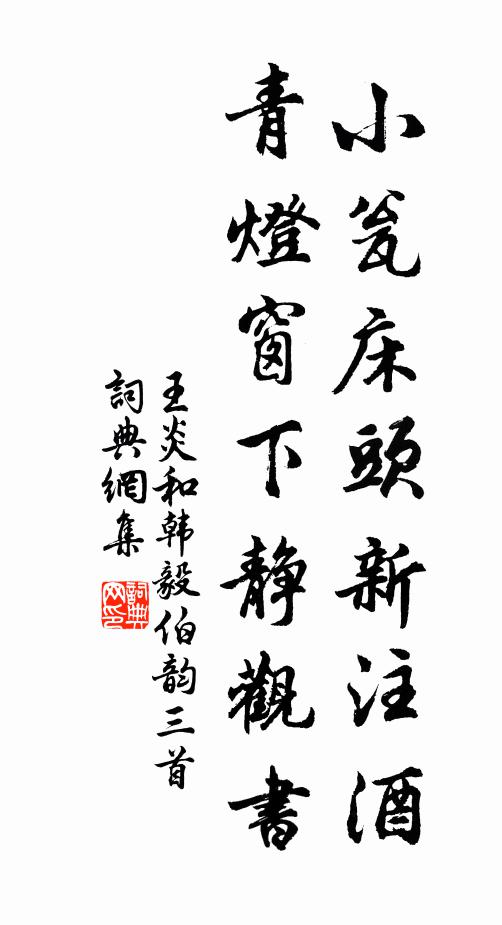 小瓮床頭新注酒
青燈窗下静觀書
王炎和韩毅伯韵三首
詞典網集
詞典网印